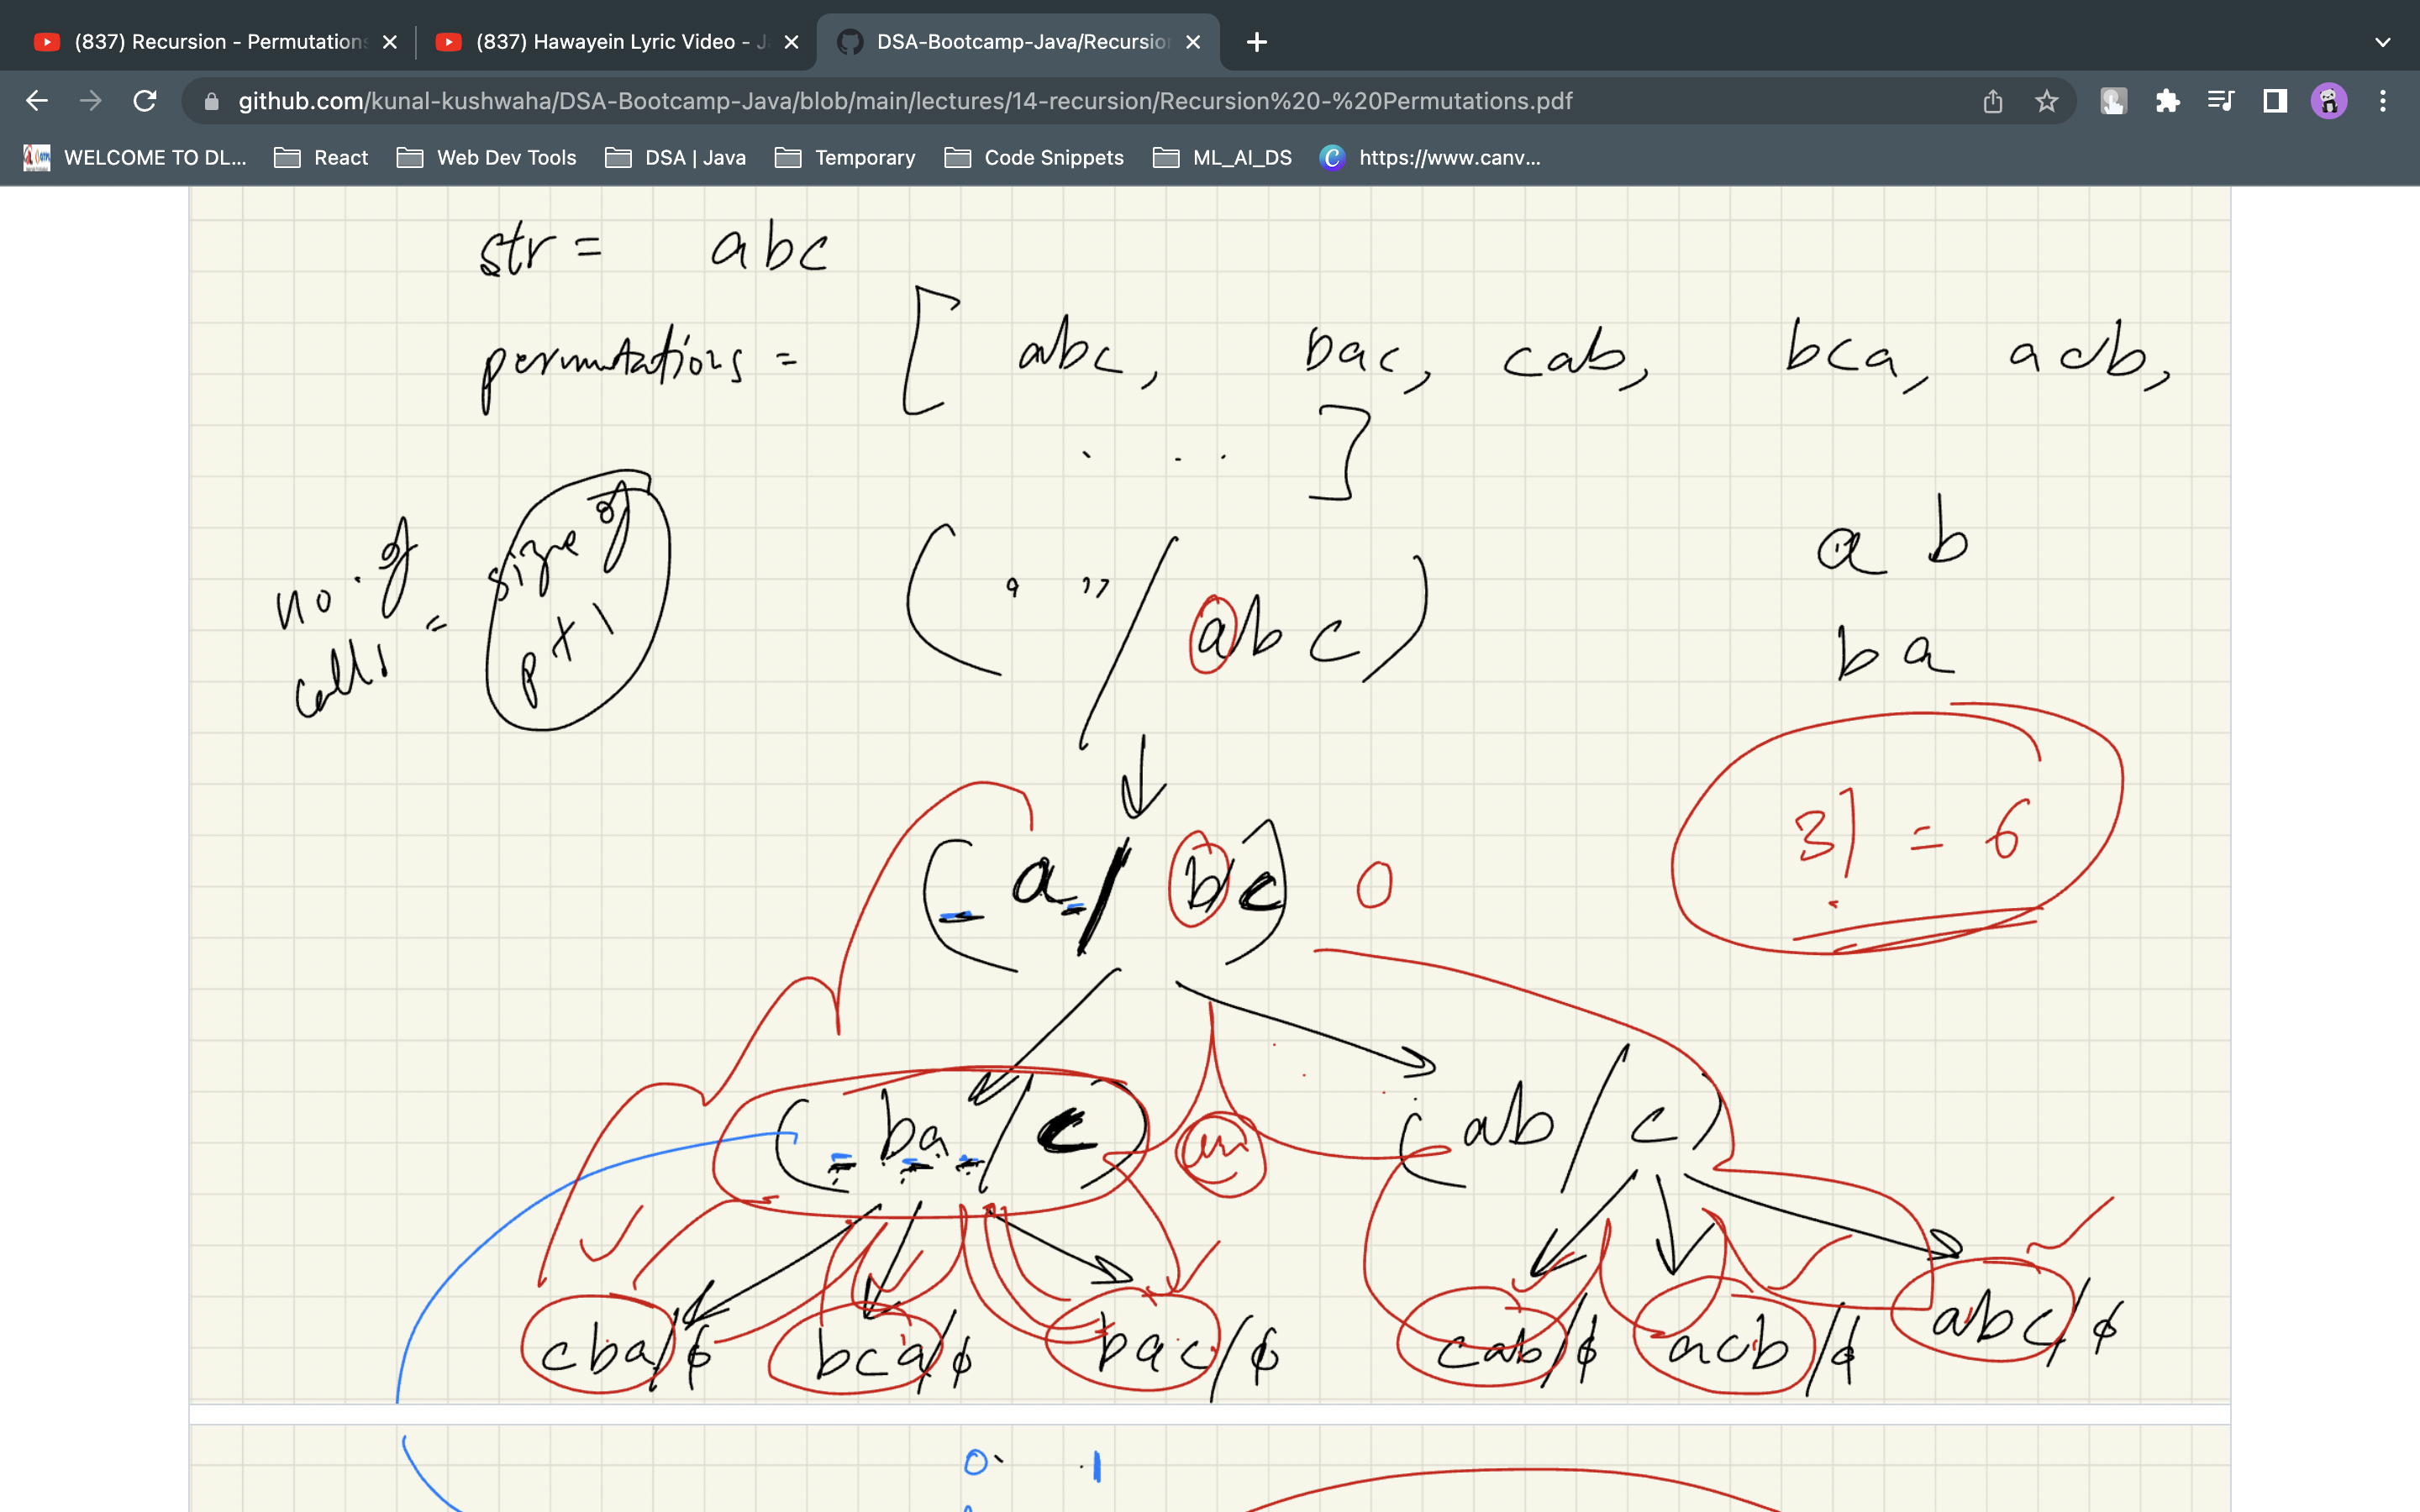 (837) Recursion - Permutations
(837) Hawayein Lyric Video - J
DSA-Bootcamp-Java/Recursion
github.com/kunal-kushwaha/DSA-Bootcamp-Java/blob/main/lectures/14-recursion/Recursion%20-%20Permutations.pdf
WELCOME TO DL... React Web Dev Tools DSA | Java Temporary Code Snippets ML_AI_DS https://www.canv...
str = abc
permutations = [ abc, bac, cab, bca, acb,
... ]
no. of calls = size of p + 1
(" " / abc)
a b
b a
3! = 6
(_ a _ / bc) 0
(_ ba _ / c)
(ab / c)
cba/ϕ bca/ϕ bac/ϕ cab/ϕ acb/ϕ abc/ϕ
0 1